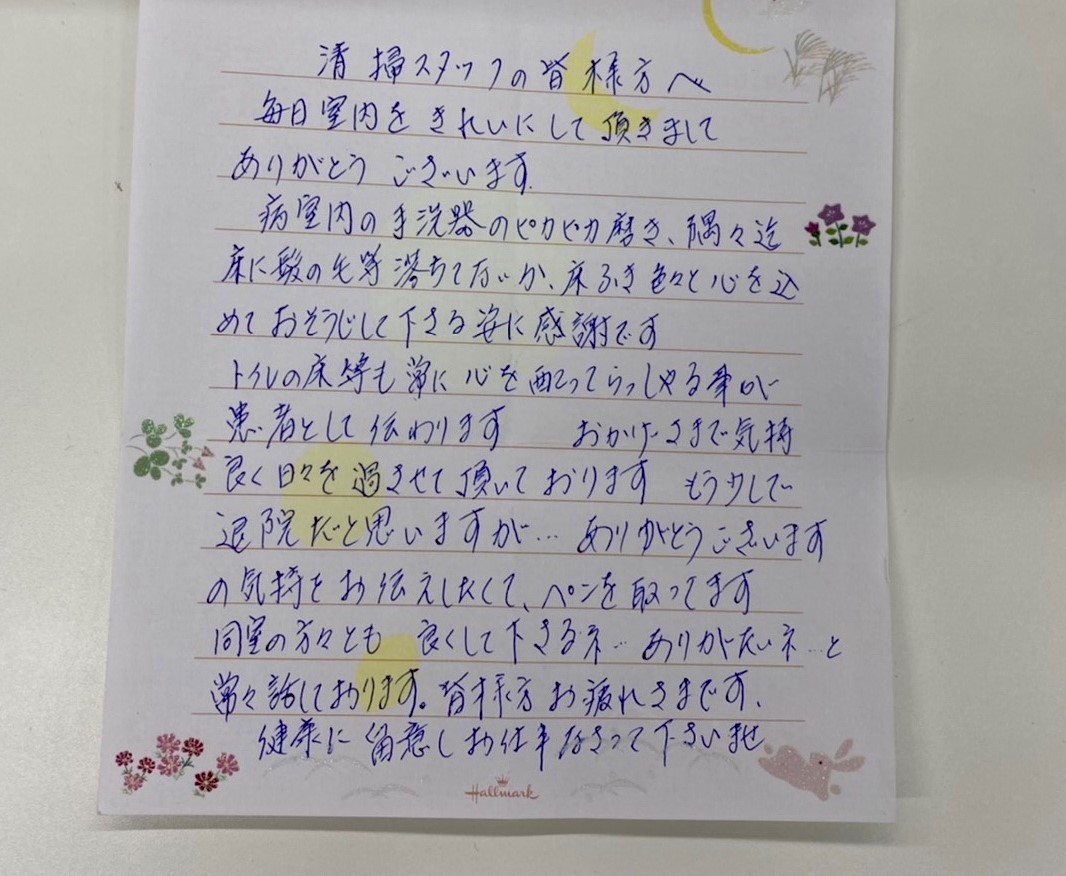 清掃スタッフの皆様方へ
毎日室内をきれいにして頂きまして
ありがとうございます。
病室内の手洗器のピカピカ磨き、隅々迄
床に髪の毛等落ちてないか、床ふき色々と心を込
めておそうじして下さる姿に感謝です
トイレの床等も常に心を配ってらっしゃる事が
患者として伝わります　おかげさまで気持
良く日々を過させて頂いております　もう少しで
退院だと思いますが… ありがとうございます
の気持をお伝えしたくて、ペンを取ってます
同室の方々とも　良くして下さるネ… ありがたいネ…と
常々話しております。皆様方お疲れさまです、
健康に留意しお仕事なさって下さいませ
Hallmark